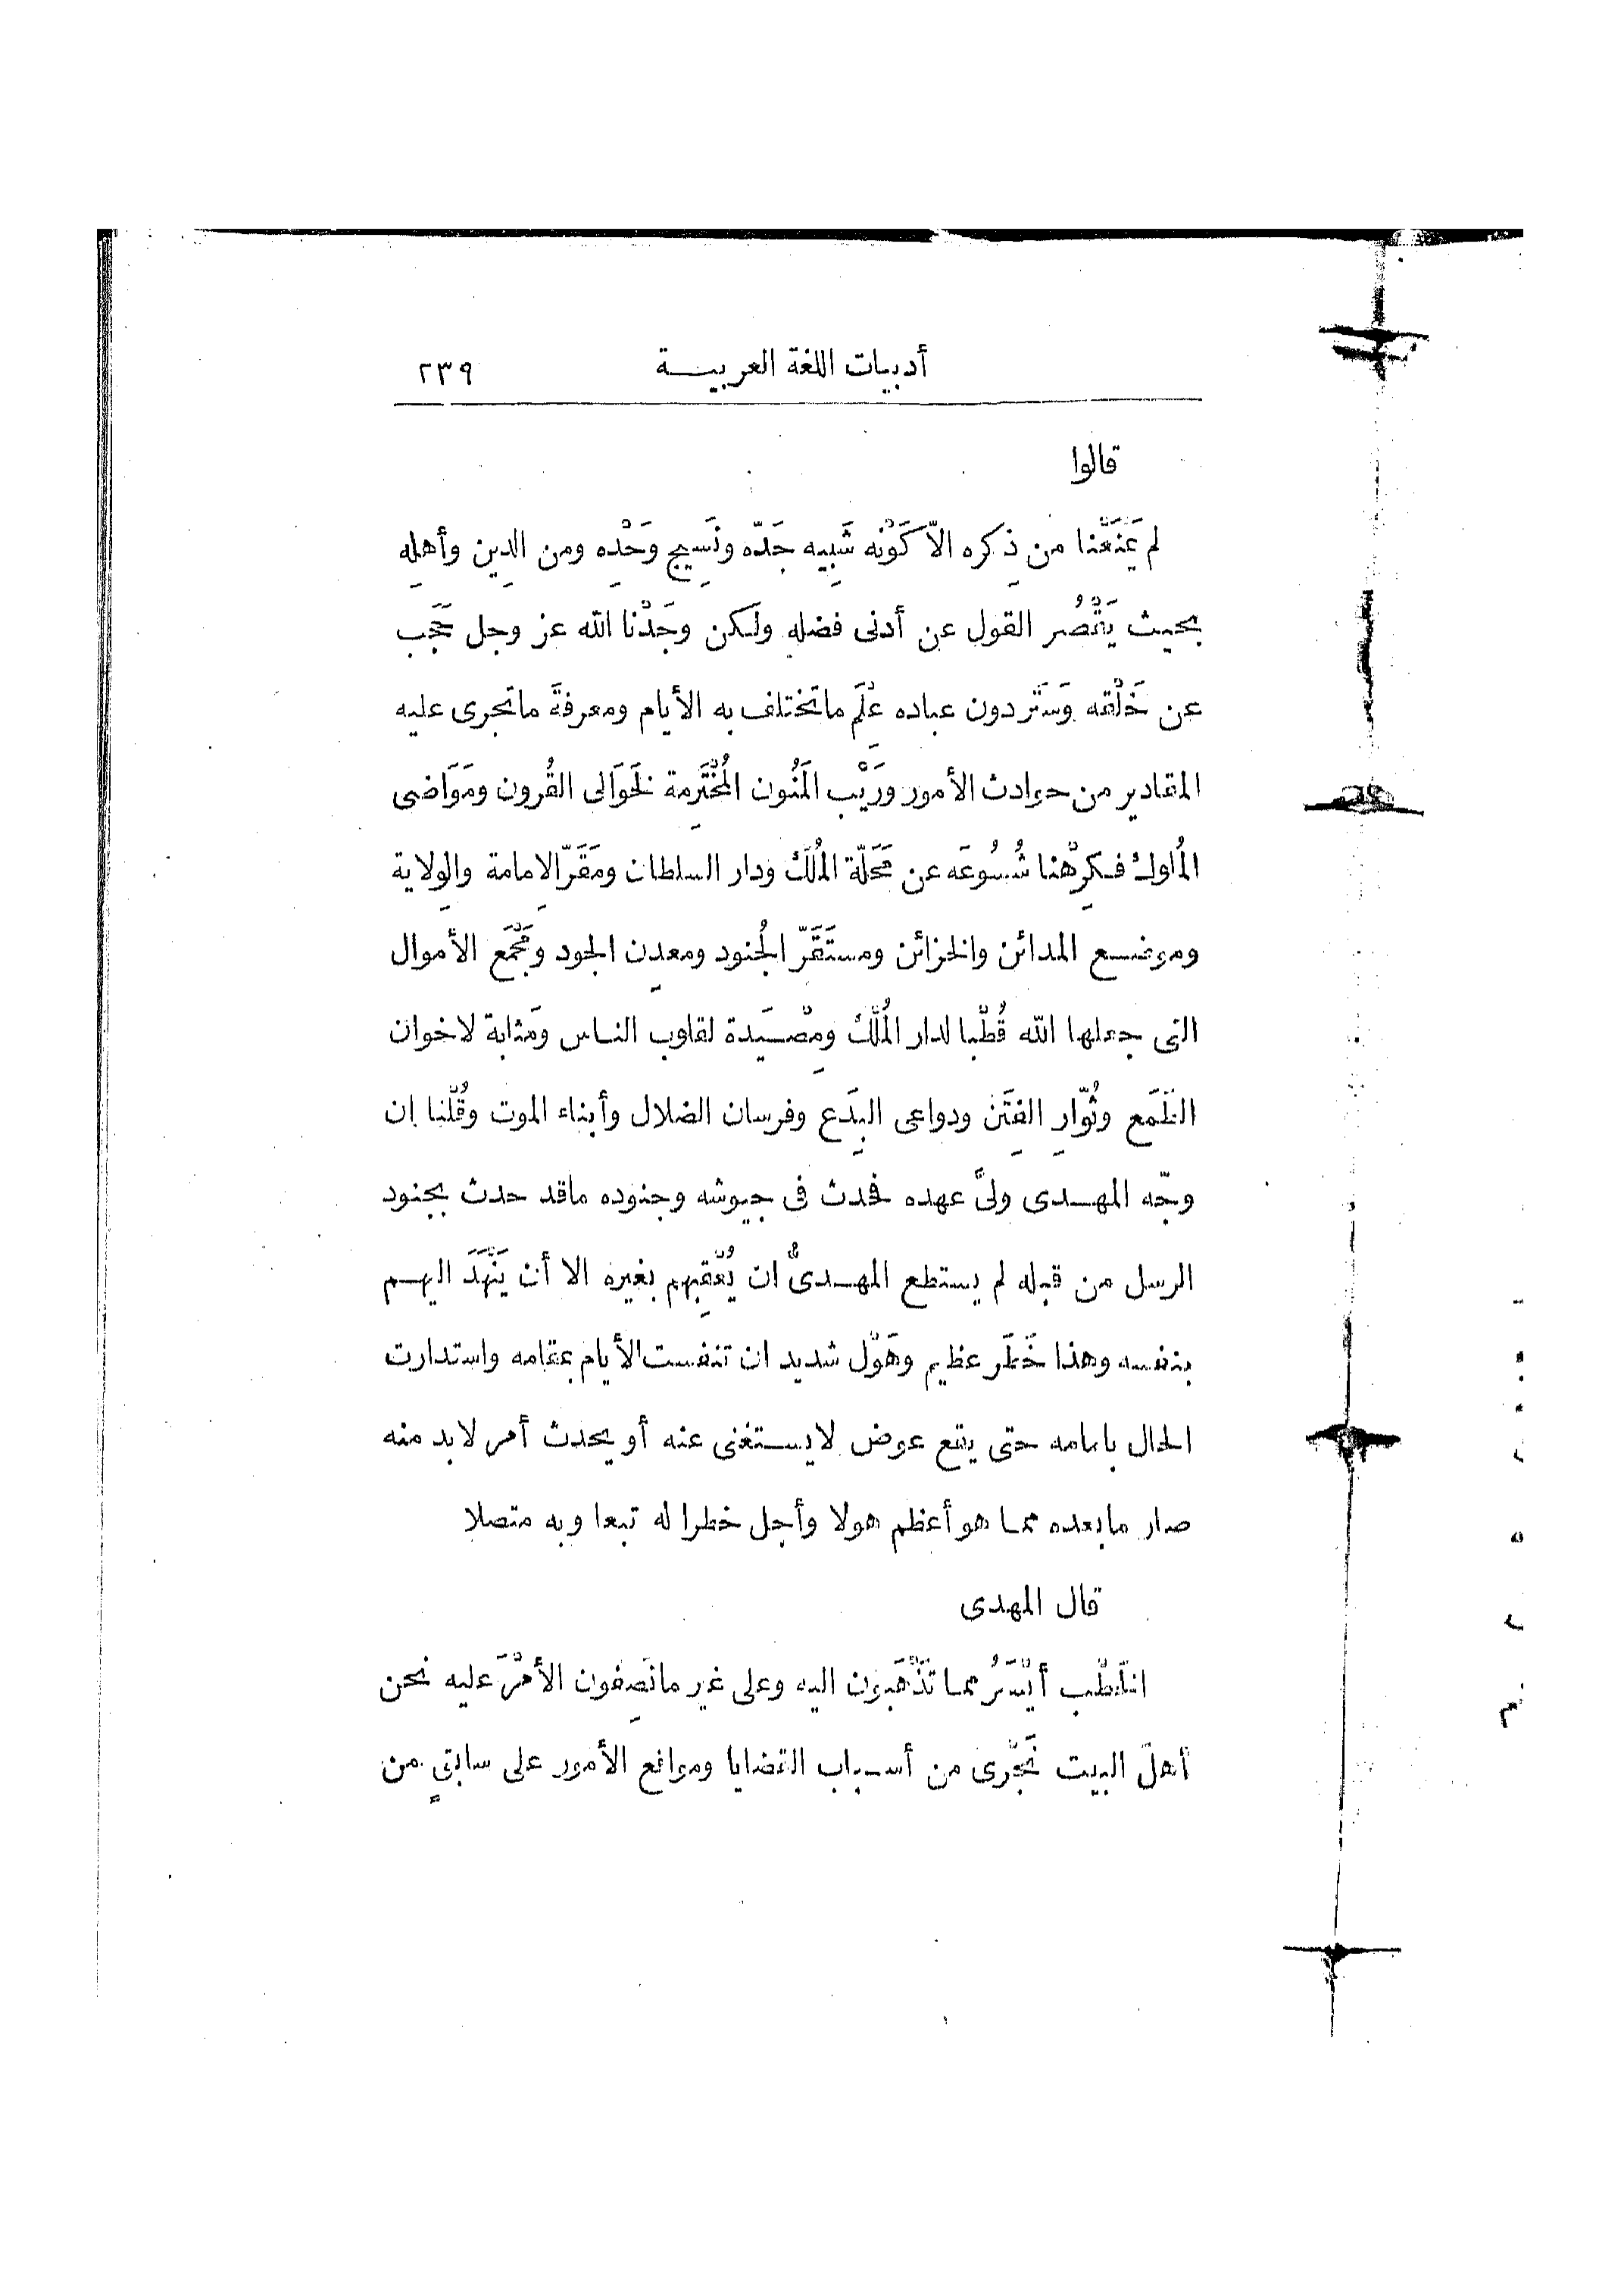 أدبيات اللغة العربيـــة ٢٣٩
قالوا
لم يَمْنَعْنا من ذِكره الّا كَوْنُه شَبِيه جَدّه ونَسِيج وَحْدِه ومن الدِين وأهلِه
بحيث يَقْصُر القول عن أدنى فضله ولَكن وجَدْنا الله عز وجل حَجَب
عن خَلْقه وَسَتَر دون عباده عِلْمَ ما تختلف به الأيام ومعرفةَ ما تجرى عليه
المقادير من حوادث الأمور ورَيْب المَنُون المُخْتَرِمة لخَوَالى القُرون ومَوَاضى
المُلوك فكَرِهْنا شُسُوعَه عن مَحَلّة المُلْك ودار السلطان ومَقَرّ الامامة والوِلاية
وموضـع المدائن والخزائن ومستَقَرّ الجُنود ومعدِن الجود ومَجْمَع الأموال
التى جعلها الله قُطْبا لدار المُلْك ومِصْيَدة لقلوب الناس ومَثابة لاخوان
الطَمَع وثُوّارِ الفِتَن ودواعى البِدَع وفرسان الضلال وأبناء الموت وقُلْنا ان
وجّه المهـدى ولىَّ عهده فحدث فى جيوشه وجنوده ماقد حدث بجنود
الرسل من قبله لم يستطع المهـدىُّ ان يُعْقِبهم بغيره الا أن يَنْهَدَ اليهـم
بنفسه وهذا خَطَر عظيم وهَوْل شديد ان تنفست الأيام بمقامه واستدارت
الحال بامامه حتى يقع عوض لايسـتغنى عنه أو يحدث أمر لابد منه
صار مابعده مما هو أعظم هولا وأجل خطرا له تبعا وبه متصلا
قال المهدى
الخَطْب أيْسَرُ مما تَذْهَبون اليه وعلى غير ماتَصِفون الأمْرَ عليه نحن
أهلَ البيت نَجْرى من أسـباب القضايا ومواقع الأمور على سابقٍ من